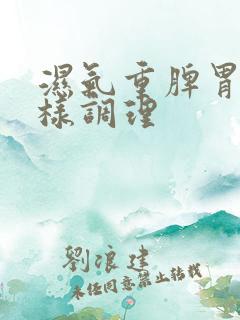 濕氣重脾胃
樣調理
劉浪建
未任同意禁止轉載